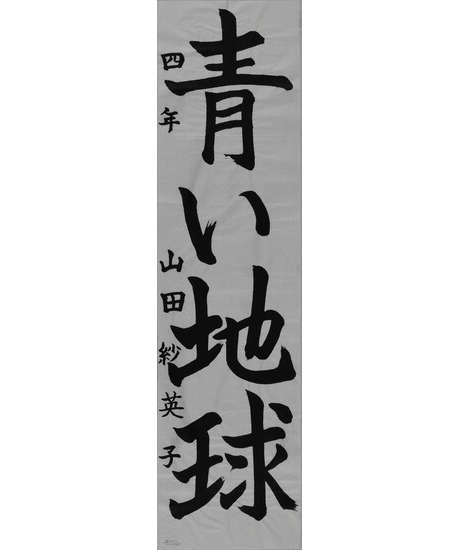 青い地球
四年 山田紗英子